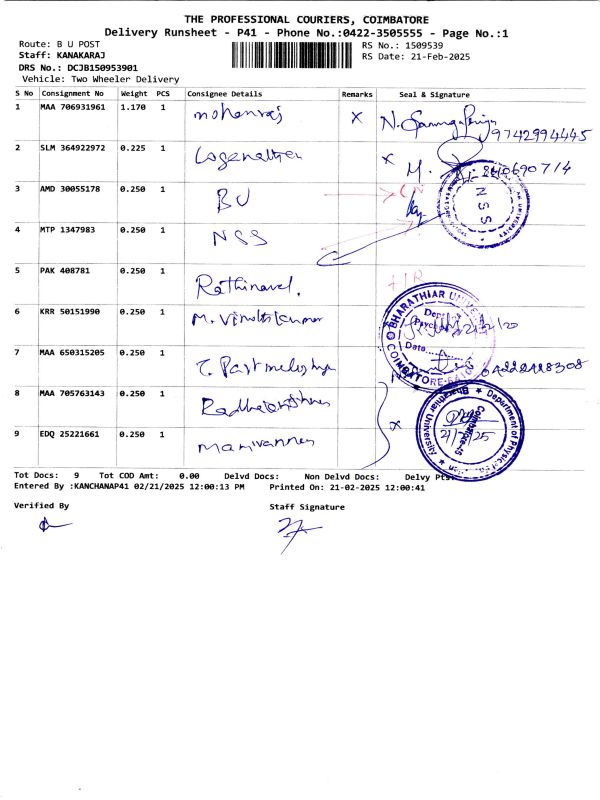 THE PROFESSIONAL COURIERS, COIMBATORE
Delivery Runsheet - P41 - Phone No.:0422-3505555 - Page No.:1
Route: B U POST
RS No.: 1509539
Staff: KANAKARAJ
RS Date: 21-Feb-2025
DRS No.: DCJB150953901
Vehicle: Two Wheeler Delivery
S No Consignment No Weight PCS Consignee Details Remarks Seal & Signature
1 MAA 706931961 1.170 1 mohanraj X
9742994445
2 SLM 364922972 0.225 1 X M.
3 AMD 30055178 0.250 1 BU
4 MTP 1347983 0.250 1 NSS
NSS
5 PAK 408781 0.250 1 Rathinavel.
6 KRR 50151990 0.250 1
BHARATHIAR UNIVE
COIMBATORE
Date
7 MAA 650315205 0.250 1
04222428308
8 MAA 705763143 0.250 1 Radhakrishnan
X
Department of Physical
Bharathiar University
Coimbatore-46
21/2/25
9 EDQ 25221661 0.250 1 Manivannan
Tot Docs: 9 Tot COD Amt: 0.00 Delvd Docs: Non Delvd Docs: Delvy Pts:
Entered By :KANCHANAP41 02/21/2025 12:00:13 PM Printed On: 21-02-2025 12:00:41
Verified By Staff Signature